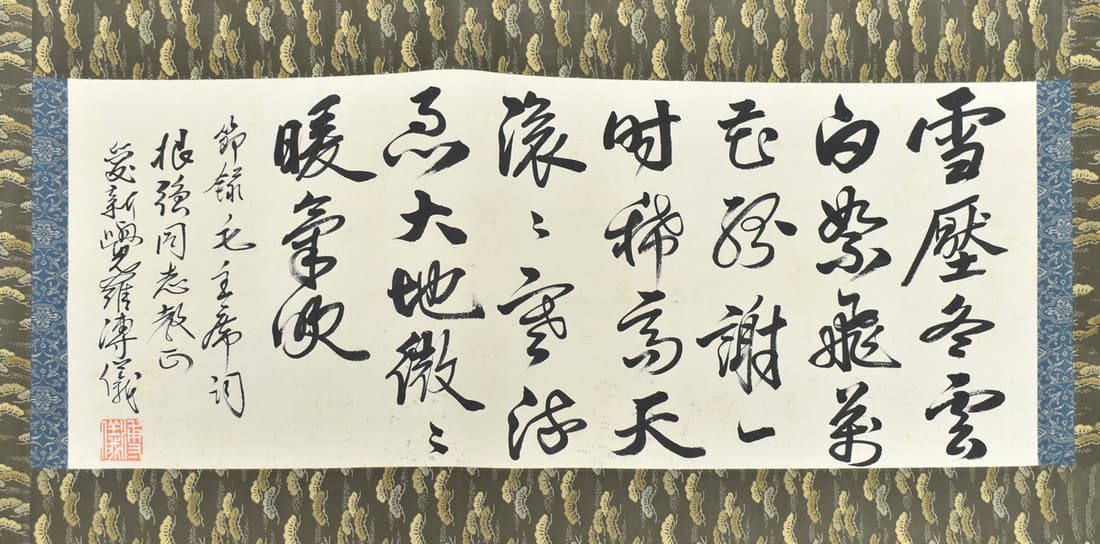 雪壓冬雲
白絮飛萬
花紛謝一
时稀高天
滾〻寒流
急大地微〻
暖氣吹
節録毛主席词
根強同志教正
愛新覺羅溥儀
溥儀